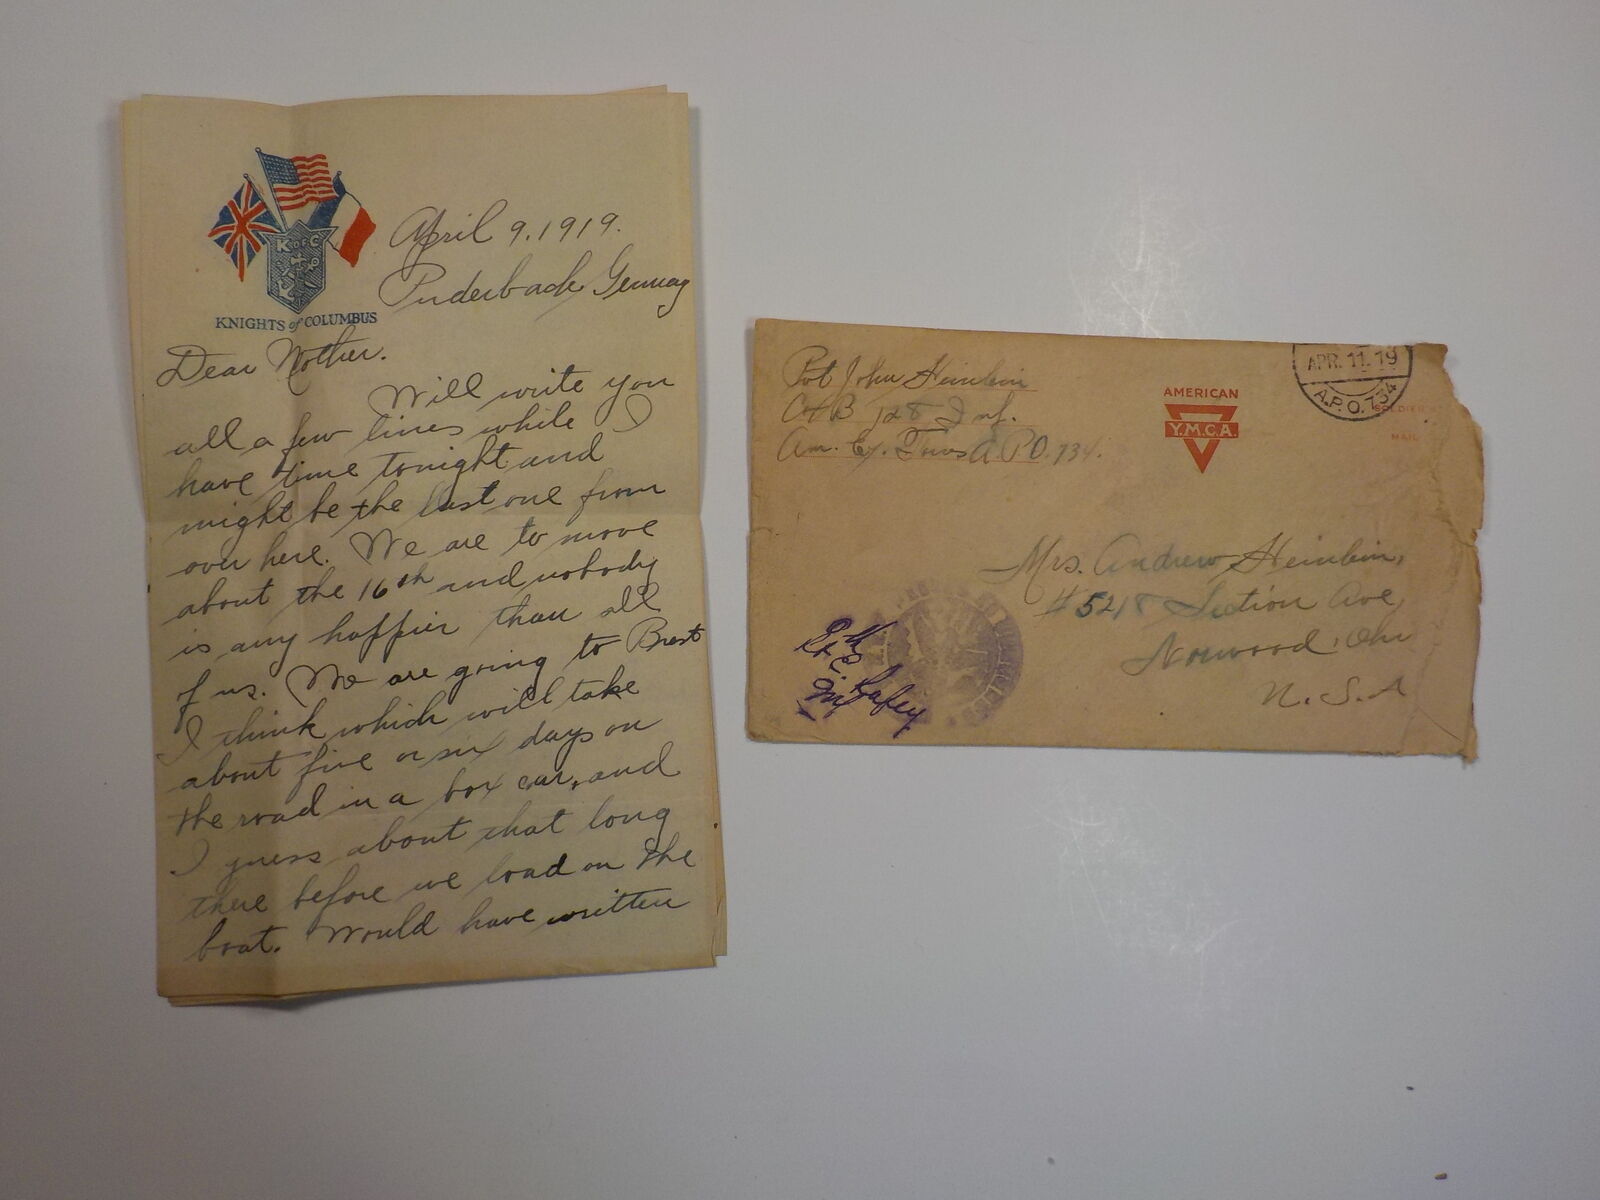 K OF C
KNIGHTS of COLUMBUS
April 9. 1919.
Puderbach Germay
Dear Mother.
Will write you
all a few lines while I
have time tonight and
might be the last one from
over here. We are to move
about the 16th and nobody
is any happier than all
of us. We are going to Brest
I think which will take
about five or six days on
the road in a box car, and
I guess about that long
there before we load on the
boat. Would have written
Pvt John Heinlein
Co B 128 Inf.
Am. Ex. Forces A.P.O. 734.
AMERICAN
Y.M.C.A.
APR. 11. 19
A.P.O. 734
SOLDIER'S
MAIL
Mrs. Andrew Heinlein,
# 5218 Section Ave,
Norwood, Ohio
U.S.A